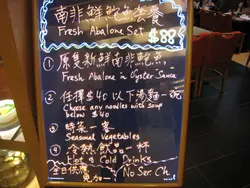 南非鮮鮑魚套餐
Fresh Abalone Set $88
① 原隻新鮮南非鮑魚
Fresh Abalone in Oyster Sauce
② 任擇 $40 以下湯麵一碗
Choose any noodles with soup
below $40
③ 時菜一客
Seasonal Vegetables
④ 冷熱飲品一杯
Hot & Cold Drinks
今日供應
No Ser Ch